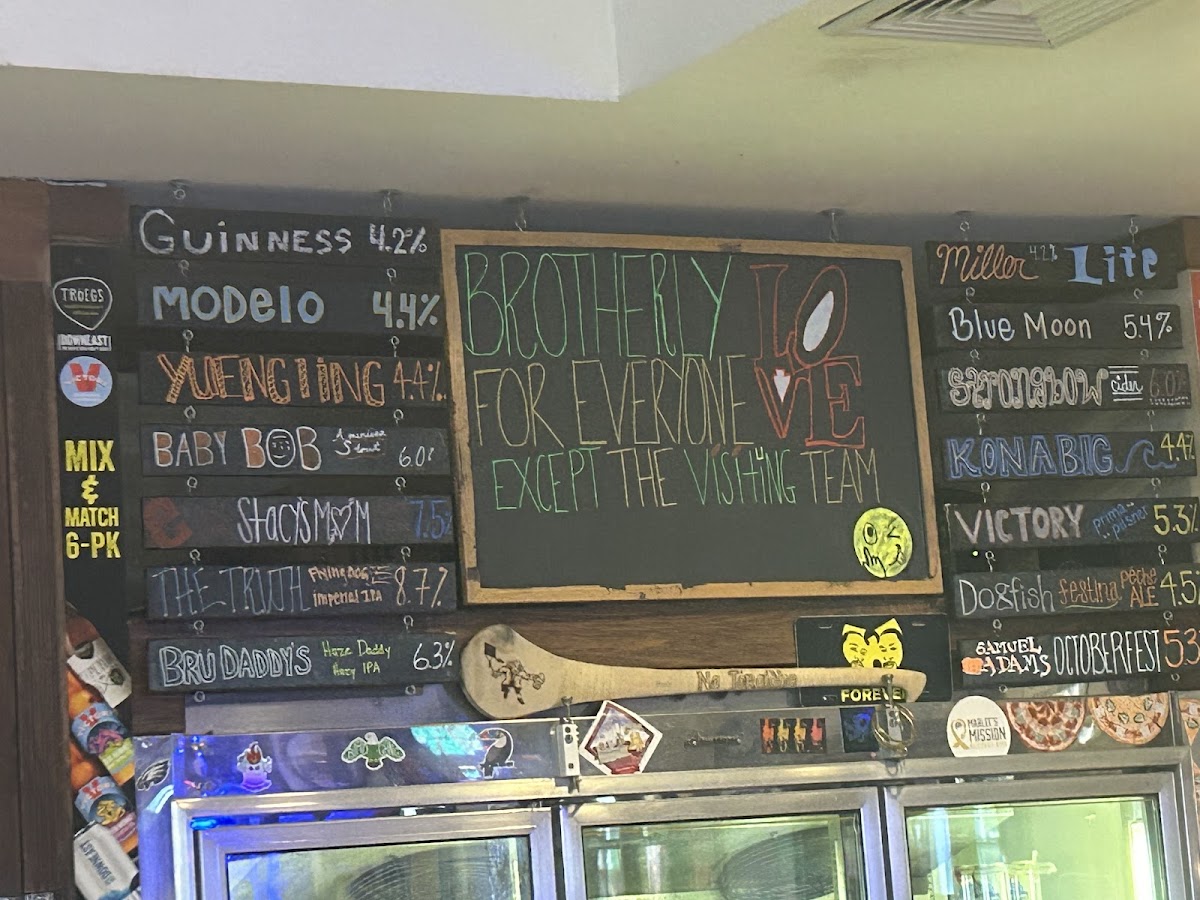 GUINNESS 4.2%
MODELO 4.4%
YUENGLING 4.4%
BABY BOB American Stout 6.0%
STACY'S MOM 7.5%
THE TRUTH FLYING DOG Imperial IPA 8.7%
BRU DADDY'S Haze Daddy Hazy IPA 6.3%
BROTHERLY LOVE
FOR EVERYONE
EXCEPT THE VISITING TEAM
Miller 4.2% Lite
Blue Moon 5.4%
STRONGBOW cider 6.0%
KONA BIG 4.4%
VICTORY prima pilsner 5.3%
Dogfish festina pêche ALE 4.5
SAMUEL ADAMS OCTOBERFEST 5.3
TRÖEGS
DOWNEAST
MIX
&
MATCH
6-PK
FOREVER
MISSION
DOWNEAST